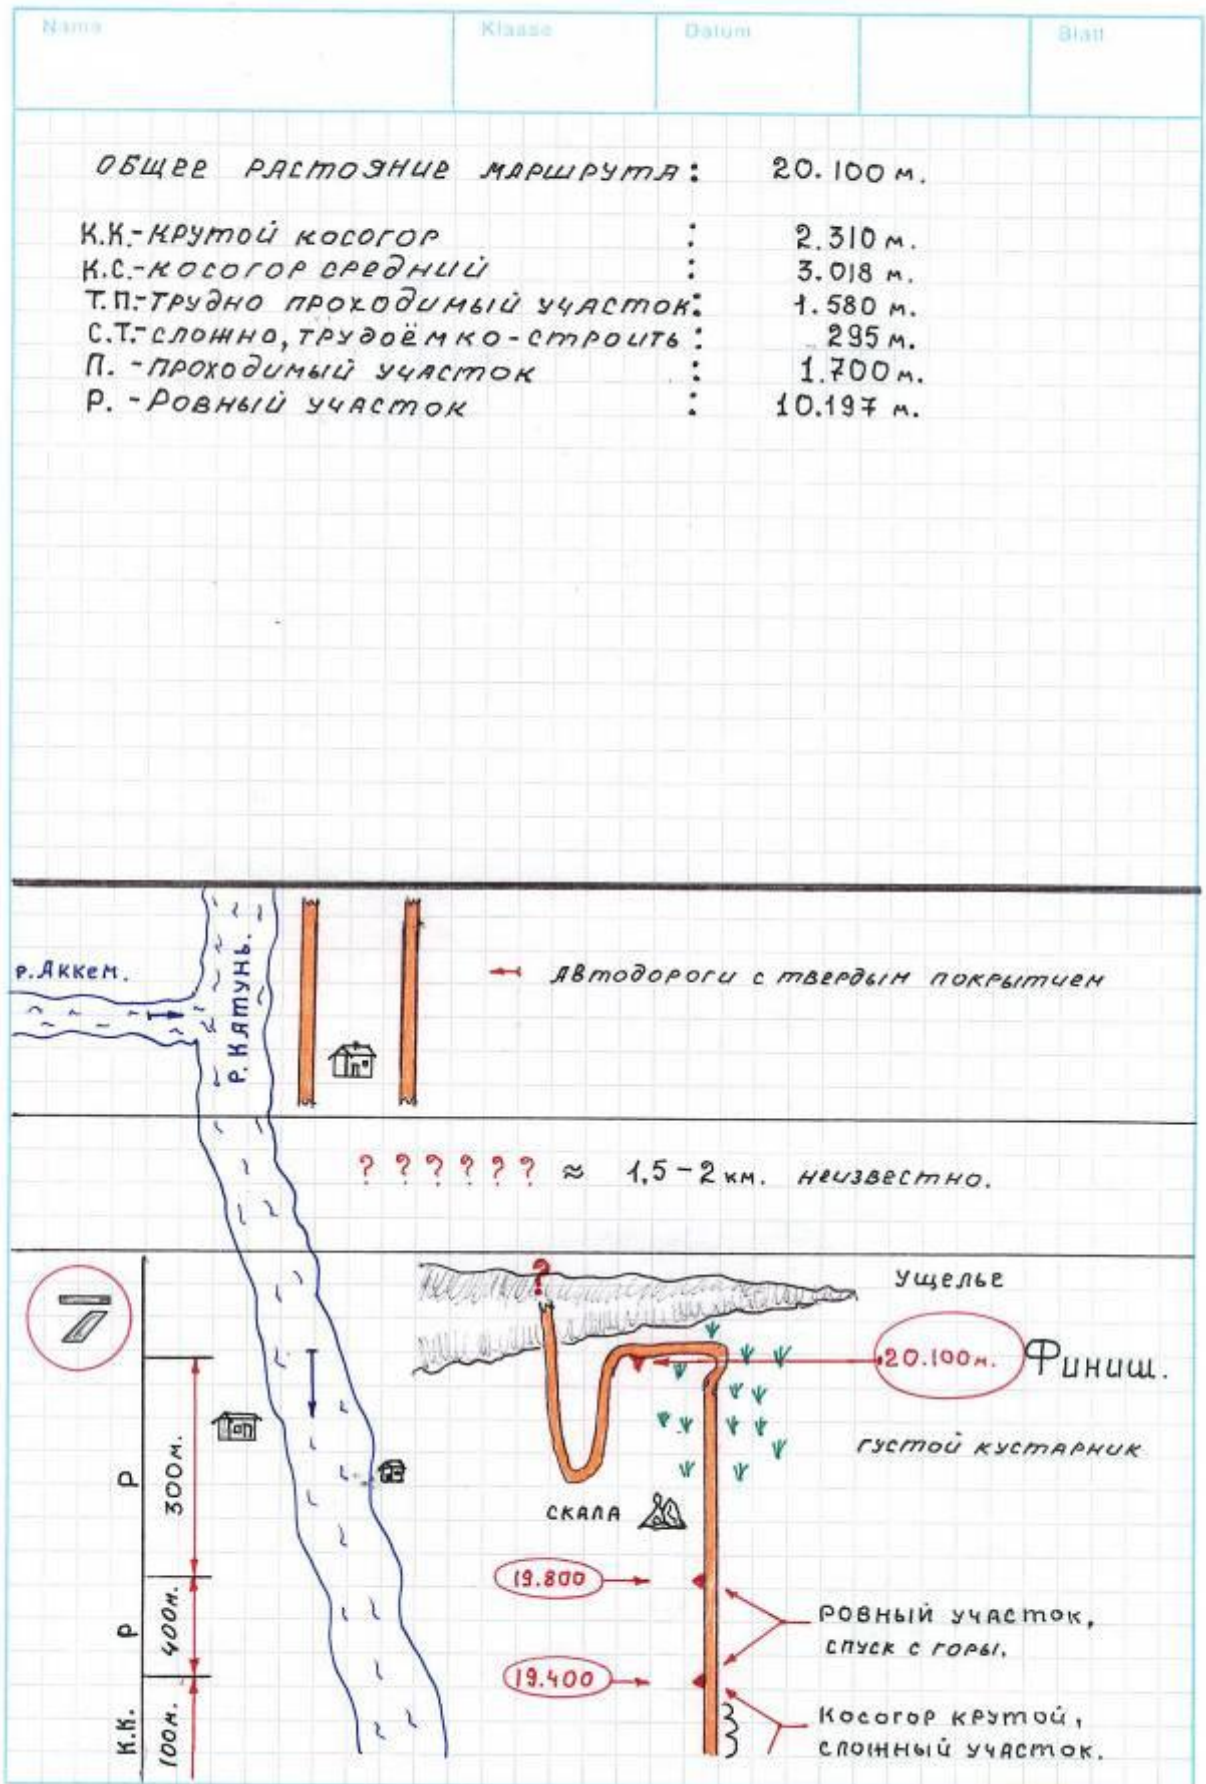 Name Klasse Datum Blatt
ОБЩЕЕ РАСТОЯНИЕ МАРШРУТА: 20.100 м.
К.К.-КРУТОЙ КОСОГОР : 2.310 м.
К.С.-КОСОГОР СРЕДНИЙ : 3.018 м.
Т.П.-ТРУДНО ПРОХОДИМЫЙ УЧАСТОК: 1.580 м.
С.Т.-СЛОЖНО, ТРУДОЁМКО-СТРОИТЬ: 295 м.
П. -ПРОХОДИМЫЙ УЧАСТОК : 1.700 м.
Р. -РОВНЫЙ УЧАСТОК : 10.197 м.
р. Аккем.
Р. КАТУНЬ.
АВТОДОРОГИ С ТВЕРДЫМ ПОКРЫТИЕМ
? ? ? ? ? ? ≈ 1,5-2 км. НЕИЗВЕСТНО.
7
?
УЩЕЛЬЕ
20.100м. ФИНИШ.
ГУСТОЙ КУСТАРНИК
Р 300м.
СКАЛА
19.800
Р 400м.
РОВНЫЙ УЧАСТОК,
СПУСК С ГОРЫ.
19.400
К.К. 100м.
КОСОГОР КРУТОЙ,
СЛОЖНЫЙ УЧАСТОК.